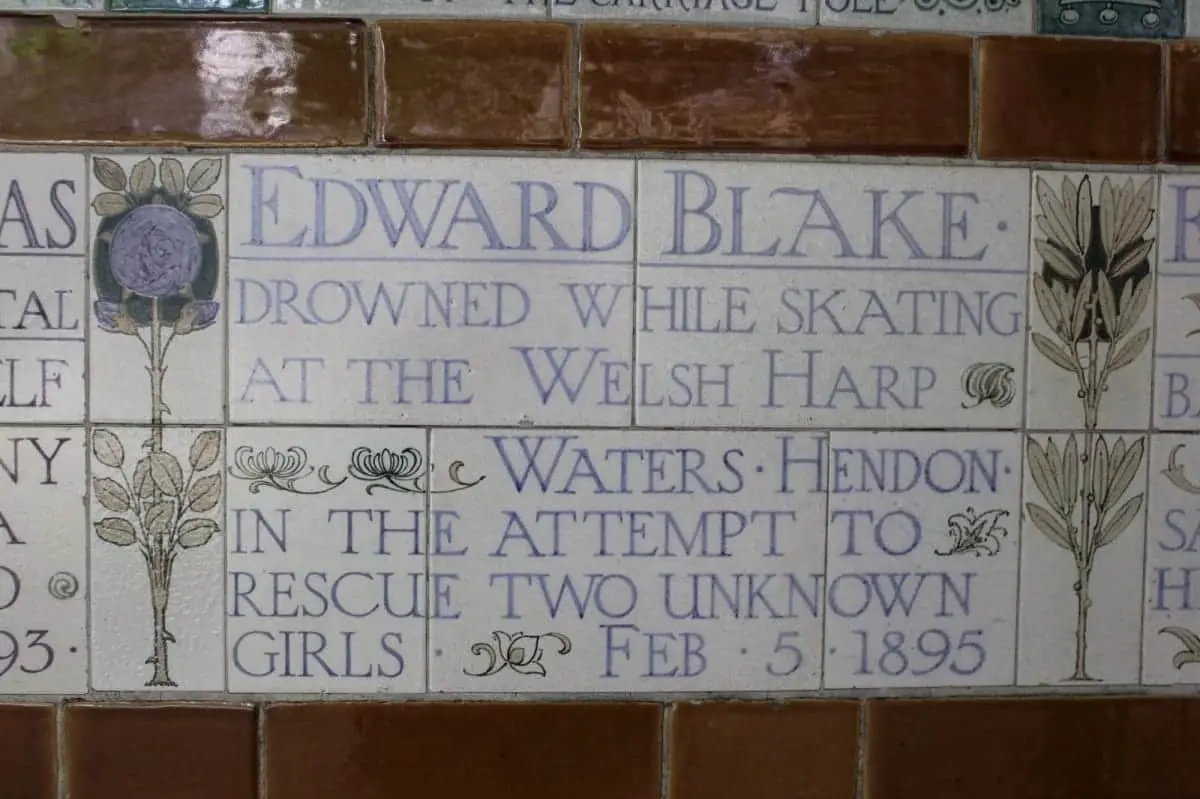 THE CARRIAGE POLE
EDWARD BLAKE ·
DROWNED WHILE SKATING
AT THE WELSH HARP
WATERS · HENDON ·
IN THE ATTEMPT TO
RESCUE TWO UNKNOWN
GIRLS · FEB · 5 · 1895
AS
TAL
ELF
NY
A
93 ·